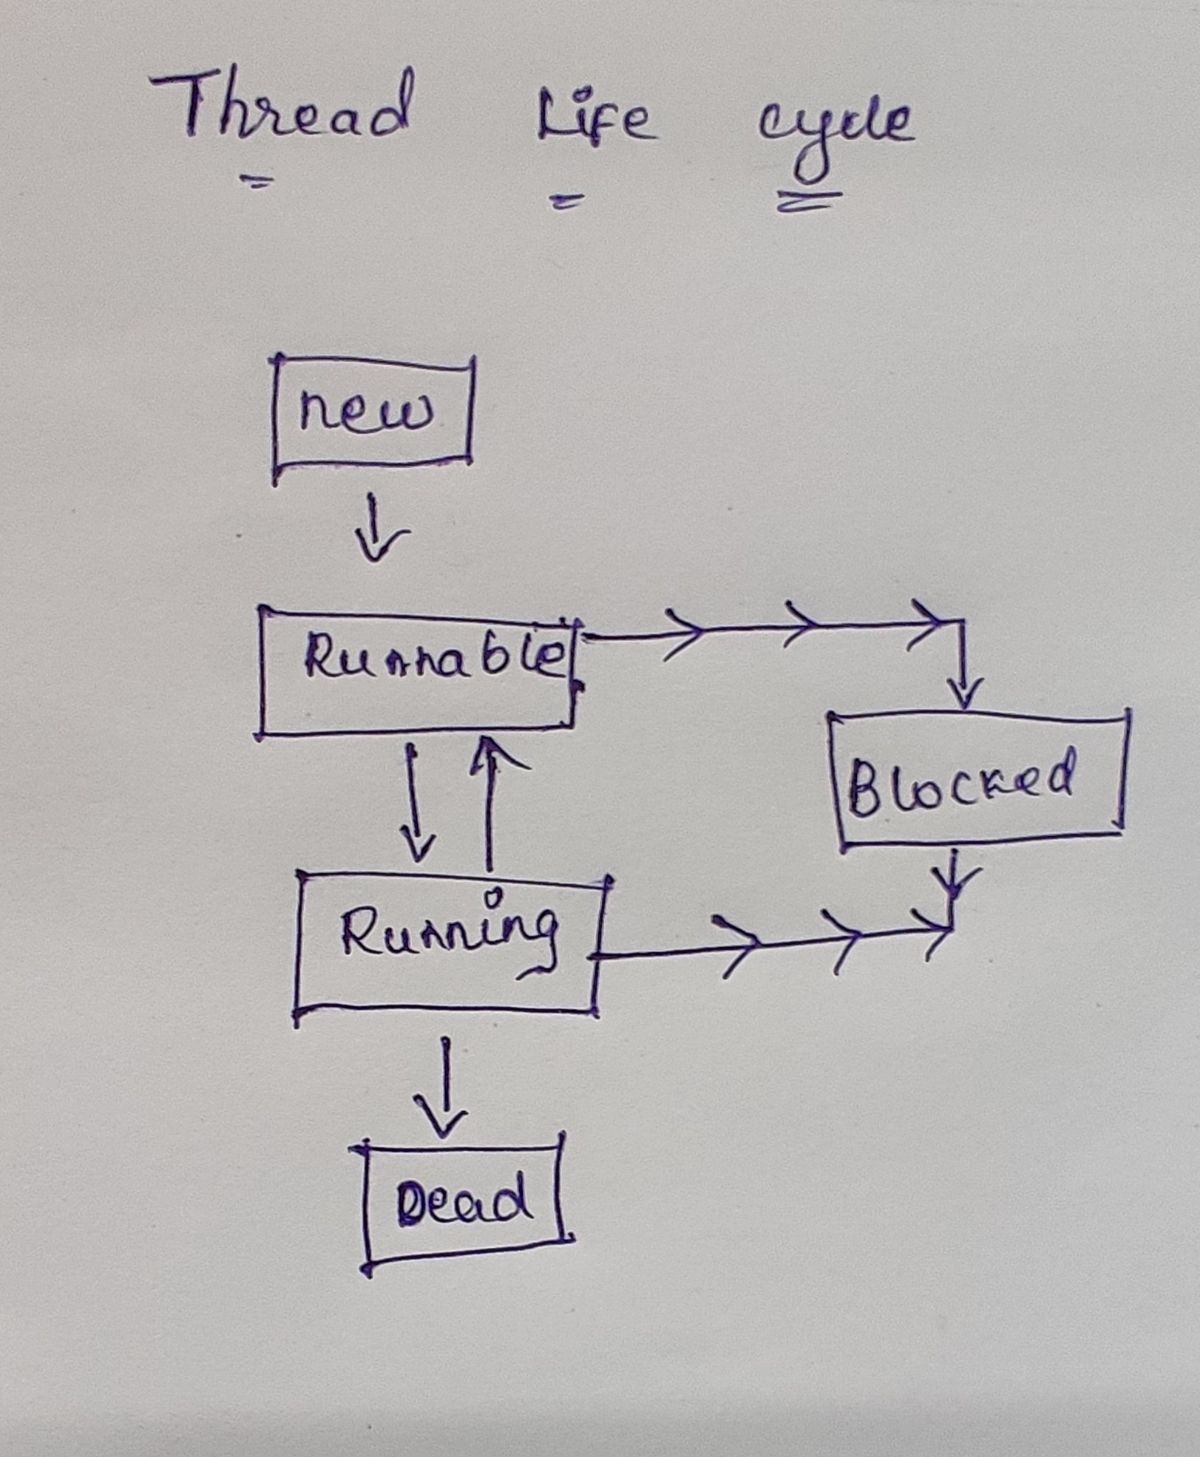 Thread Life cycle
new
Runnable
Blocked
Running
Dead